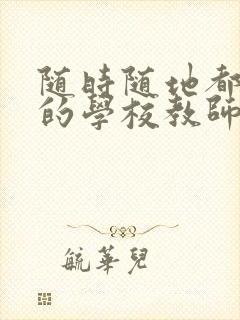 随时随地都
的學校教師
毓華兒